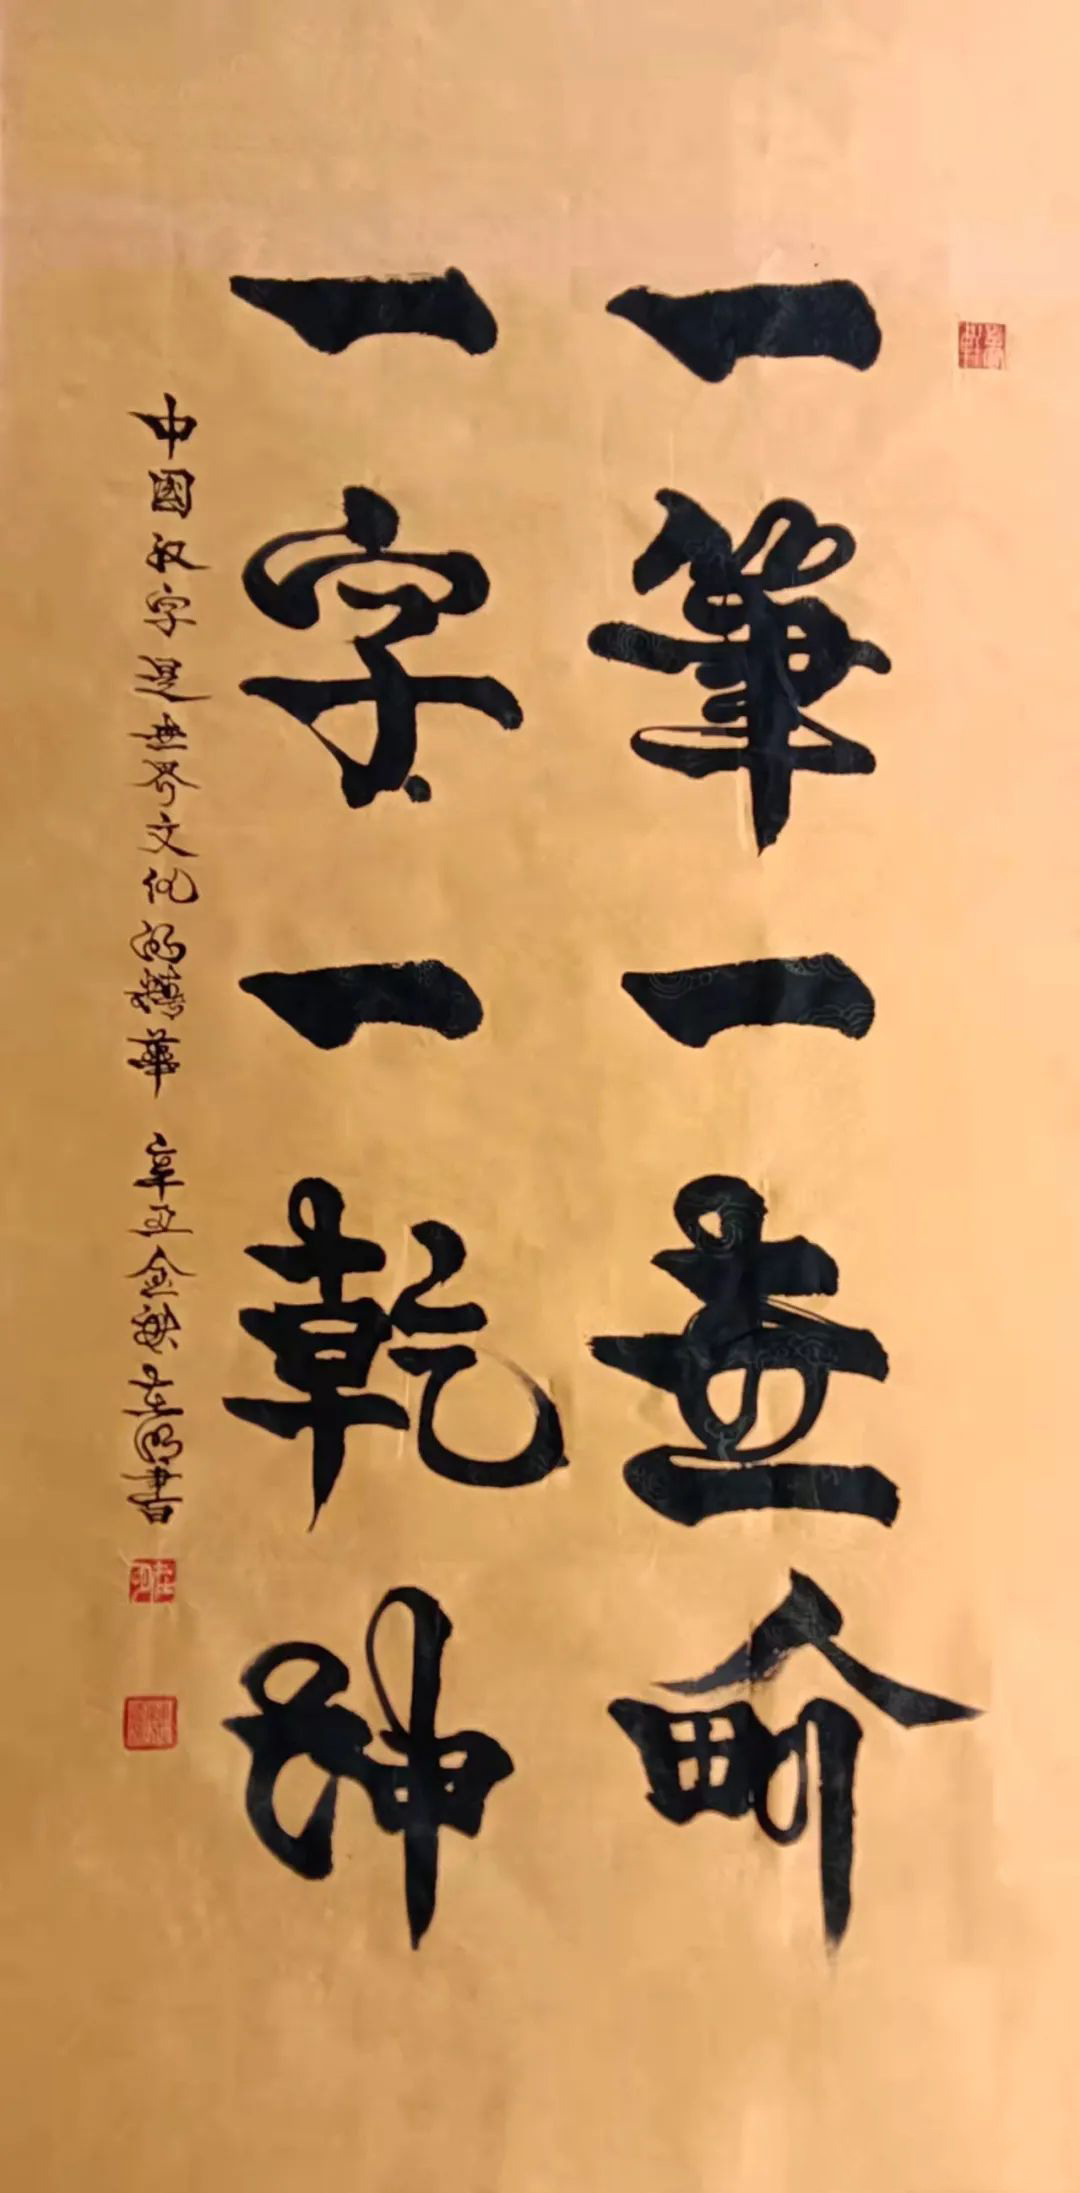 一筆一世界
一字一乾坤
中國汉字是世界文化的精華 辛丑金秋 書